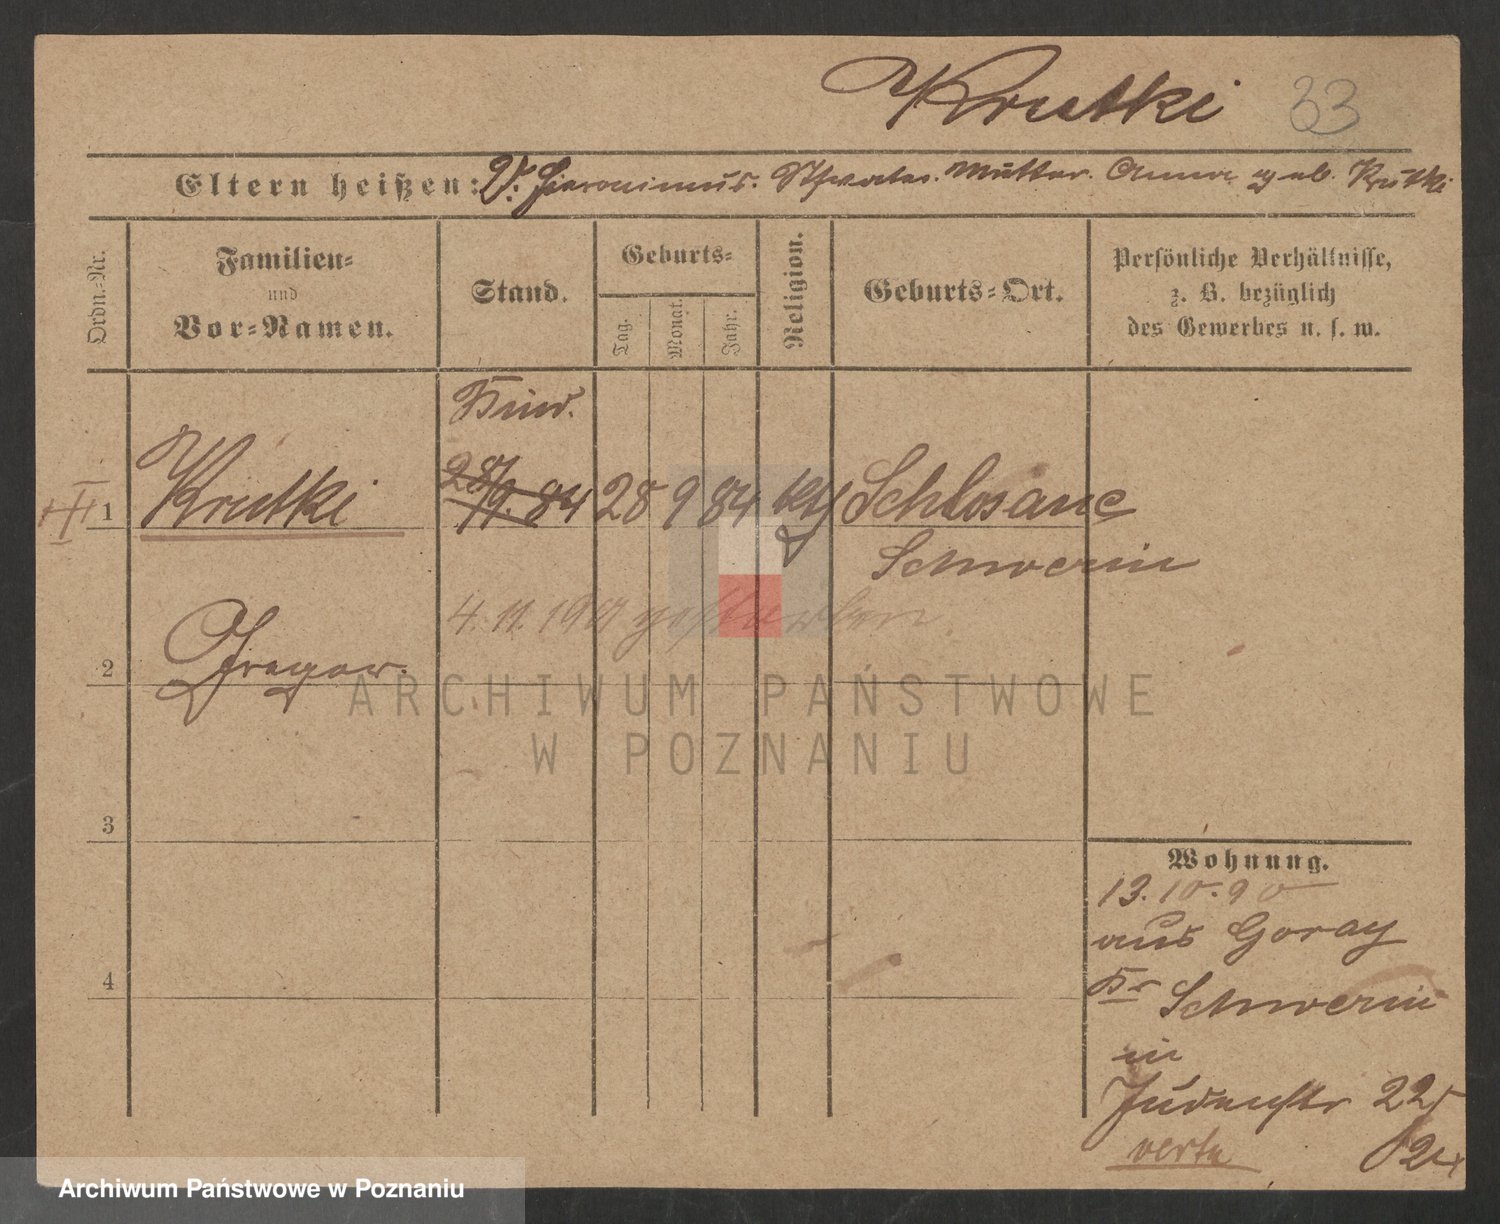 Krutki 33
Eltern heißen: V. Hieronimus. Mutter. Anna geb. Krutki
Ordn.=Nr.
Familien=
und
Vor=Namen.
Stand.
Geburts=
Tag.
Monat.
Jahr.
Religion.
Geburts=Ort.
Persönliche Verhältnisse,
z. B. bezüglich
des Gewerbes u. s. w.
Kind.
1 Krutki 28/9. 84 28 9 84 kth Schlosane
Schwerin
4. 11. 1901 gestorben
2 Gregor.
3
4
Wohnung.
13. 10. 90
aus Goray
Kr Schwerin
in
Judenstr 22
verte
ARCHIWUM PAŃSTWOWE
W POZNANIU
Archiwum Państwowe w Poznaniu